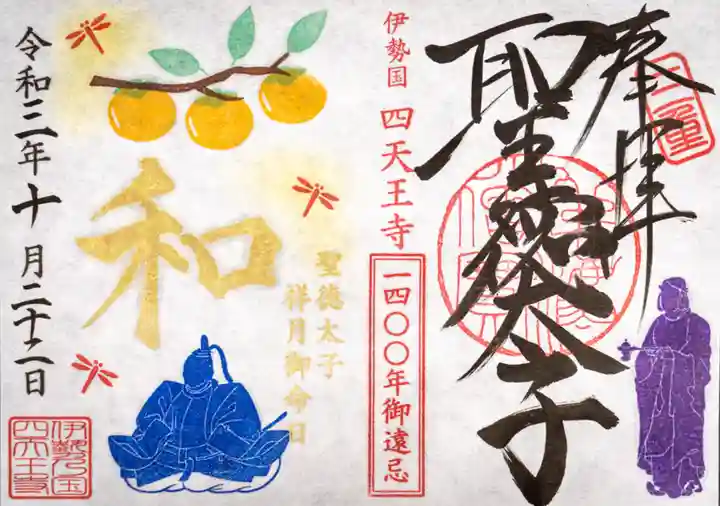 奉拝
三重
聖徳太子
伊勢国 四天王寺
一四〇〇年御遠忌
和
聖徳太子
祥月御命日
令和三年十月二十二日
伊勢乃国
四天王寺